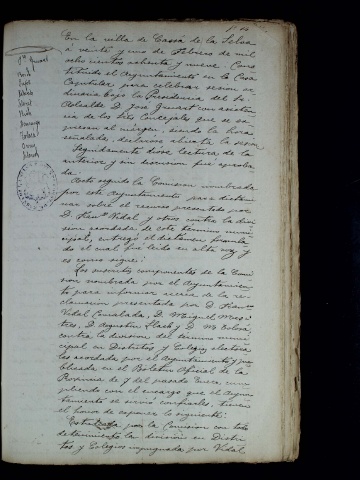 En la villa de Cassá de la Selva
á veinte y uno de Febrero de mil
ochocientos ochenta y nueve. Cons
tituido el Ayuntamiento en la Casa
Capitular para celebrar sesion or
dinaria bajo la Presidencia del Sr.
Alcalde D. José Gruart con asisten
cia de los Sres Concejales que se ex
presan al margen, siendo la hora
señalada, declarose abierta la sesion.
Seguidamente diose lectura de la
anterior y sin discusion fué aproba
da.
Acto seguido la Comision nombrada
por este Ayuntamiento para dictami
nar sobre el recurso presentado por
D. Franco Vidal y otros contra la divi
sion acordada de este termino muni
cipal, entregó el dictamen formula
do el cual fué leido en alta voz y
es como sigue:
Los suscritos componentes de la Comi
sion nombrada por el Ayuntamien
to para informar acerca de la re
clamacion presentada por D. Franco
Vidal D. Miguel
D. Agustin y D. M.
contra la division del termino muni
cipal en Distritos y Colegios electora
les acordada por el Ayuntamiento y pu
blicada en el Boletin Oficial de la
Provincia de 7 del pasado Enero, cum
pliendo con el encargo que el Ayun
tamiento se sirvió confiarles, tienen
el honor de exponer lo siguiente:
Estudiada por la Comision con todo
detenimiento la division en Distri
tos y Colegios impugnada por Vidal